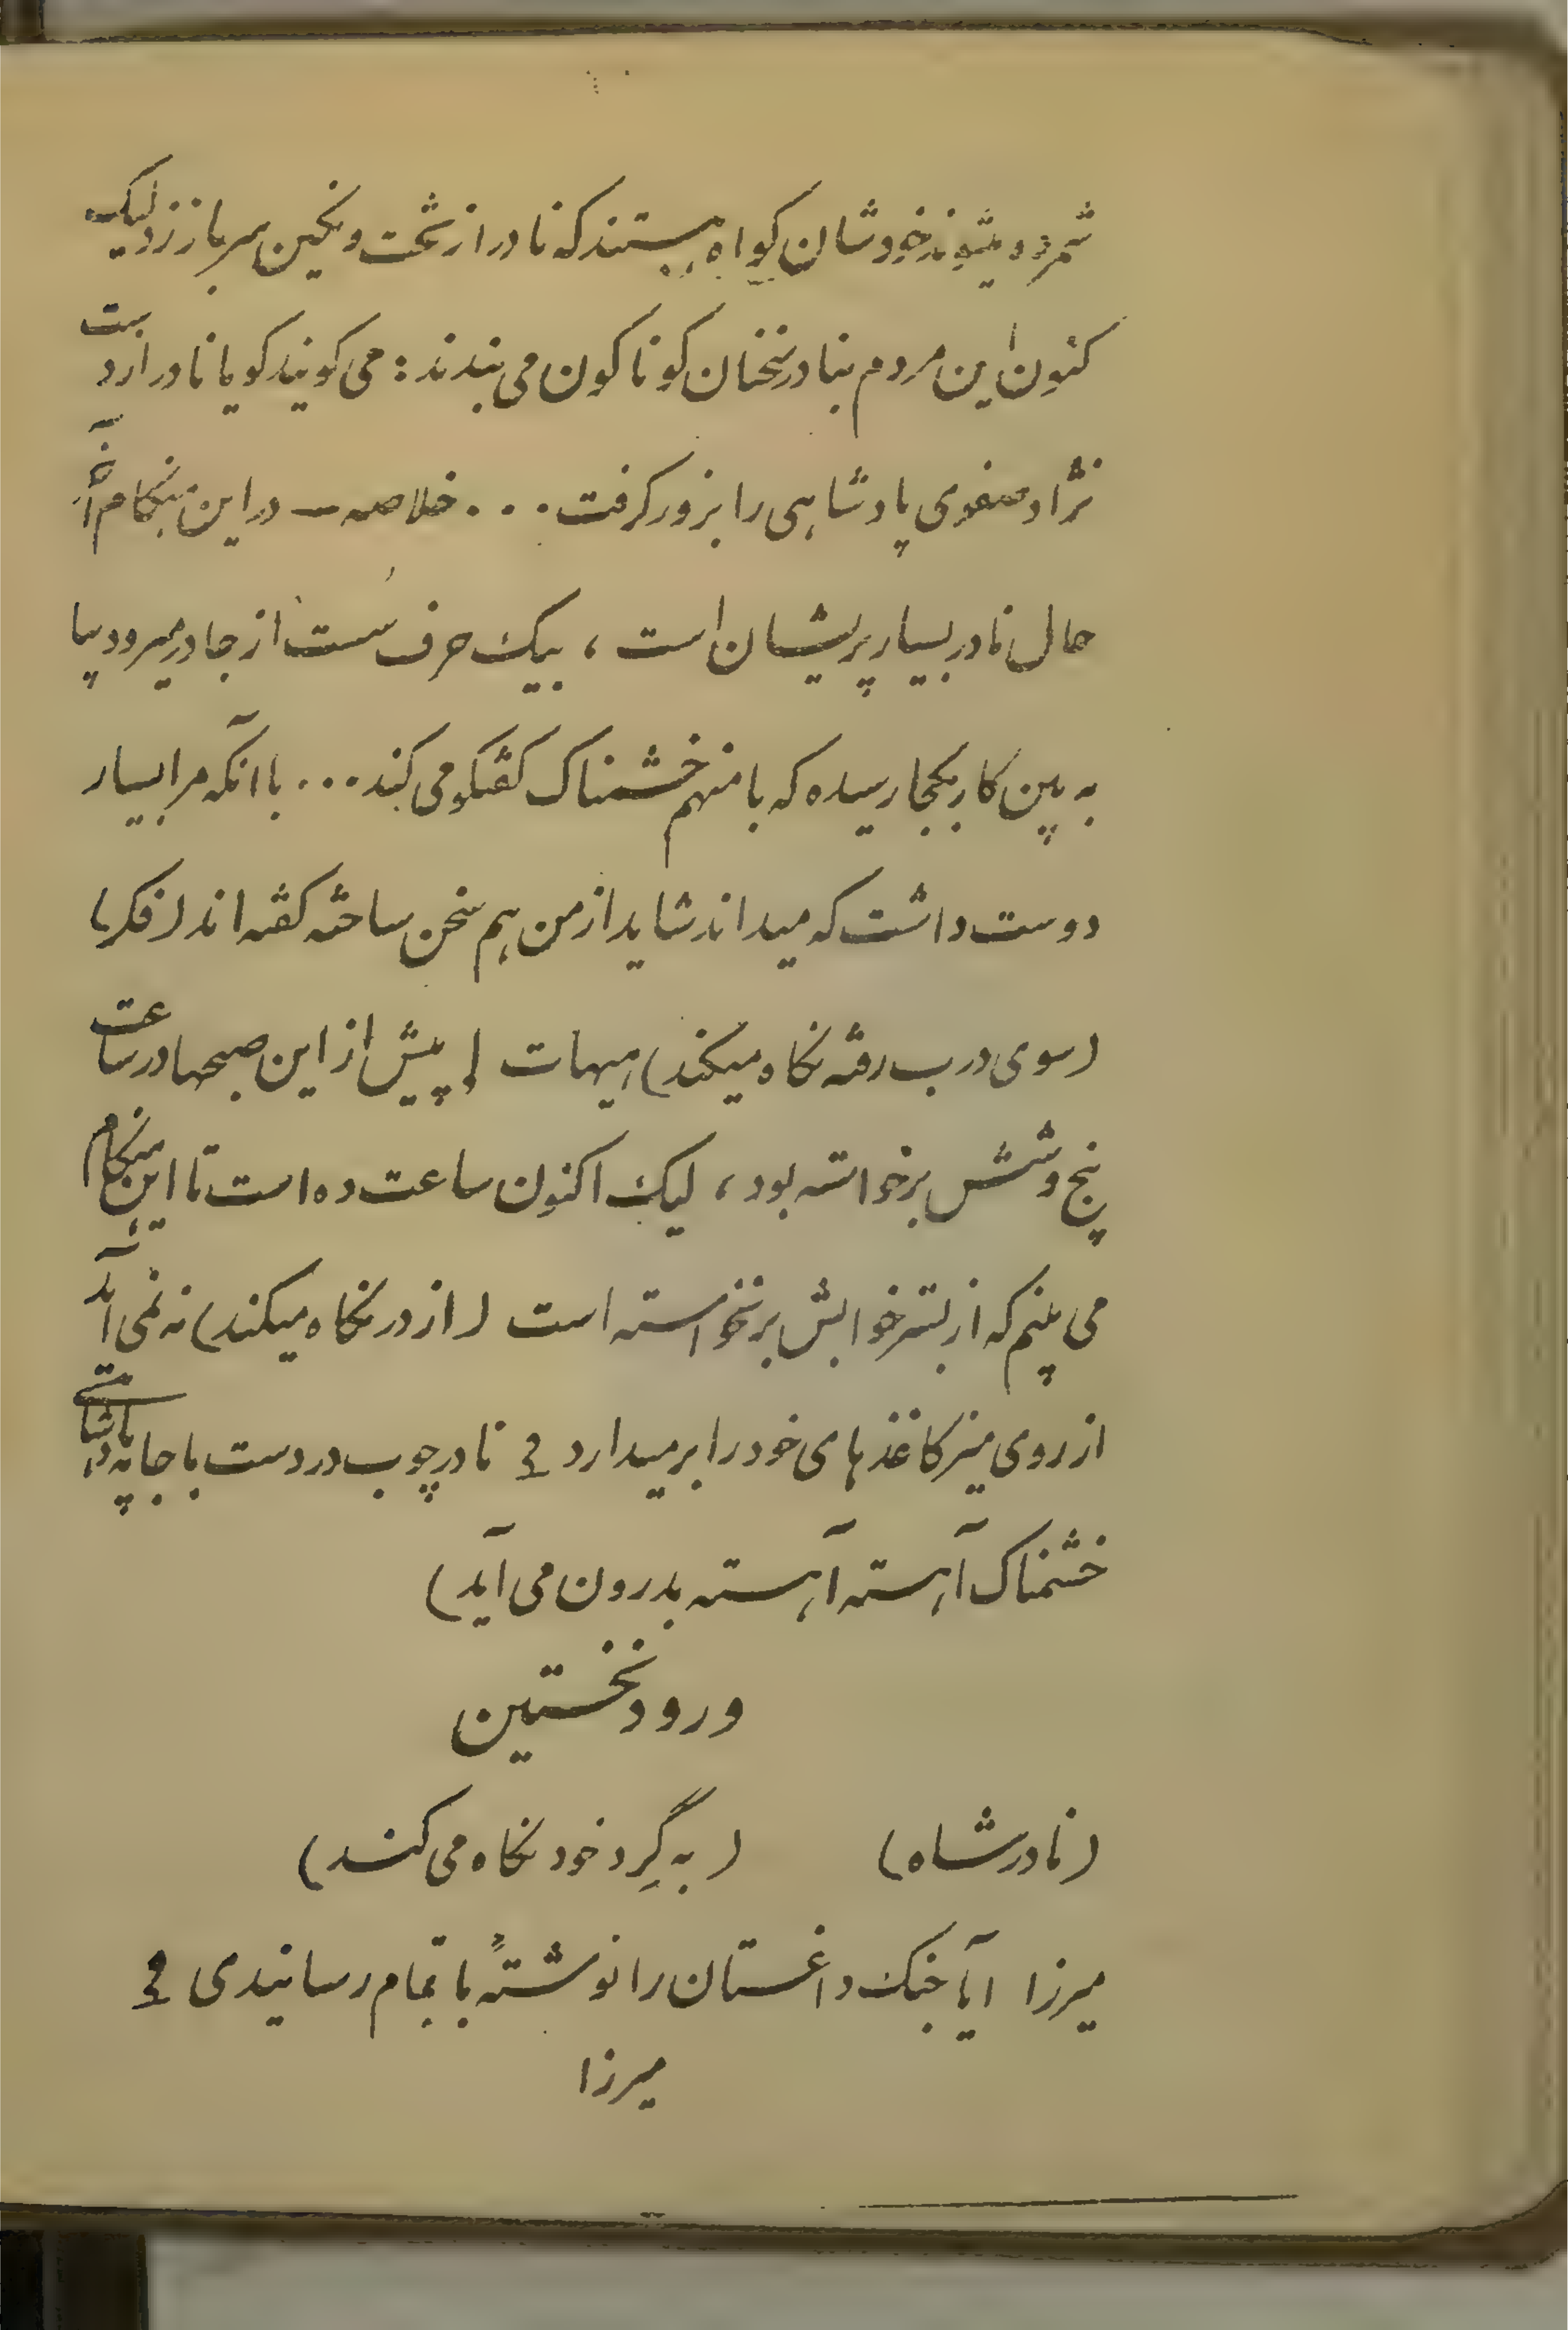 شمرده میشوند خودشان کواه هستند که نادر از تخت و نکین سرباز زد لیک
کنون این مردم بنادر سخنان کوناکون می بندند : می کویند کویا نادر از دست
نژاد صفوی پادشاهی را بزور کرفت . . . خلاصه — در این هنکام آنجا
حال نادر بسیار پریشان است ، بیک حرف سست از جا در میرود بیا
به بین کار بکجا رسیده که با منهم خشمناک کفتکو می کند . . . با آنکه مرا بسیار
دوست داشت که میداند شاید از من هم سخن ساخته کفته اند (فکر)
(سوی درب رفته نکاه میکند) هیهات ! پیش از این صبحها در ساعت
پنج و شش برخواسته بود ، لیک اکنون ساعت ده است تا این هنکام
می بینم که از بستر خوابش برنخواسته است (از در نکاه میکند) نه نمی آید
از روی میز کاغذهای خود را برمیدارد نادر چوب در دست با جامه پادشاهی
خشمناک آهسته آهسته بدرون می آید)
ورود نخستین
(نادرشاه) (به گِرد خود نکاه می کند)
میرزا آیا جنک داغستان را نوشته با تمام رسانیدی
میرزا